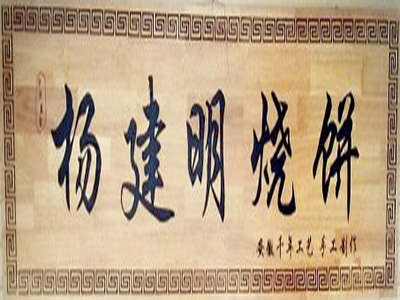 杨建明烧饼
安徽千年工艺 手工制作